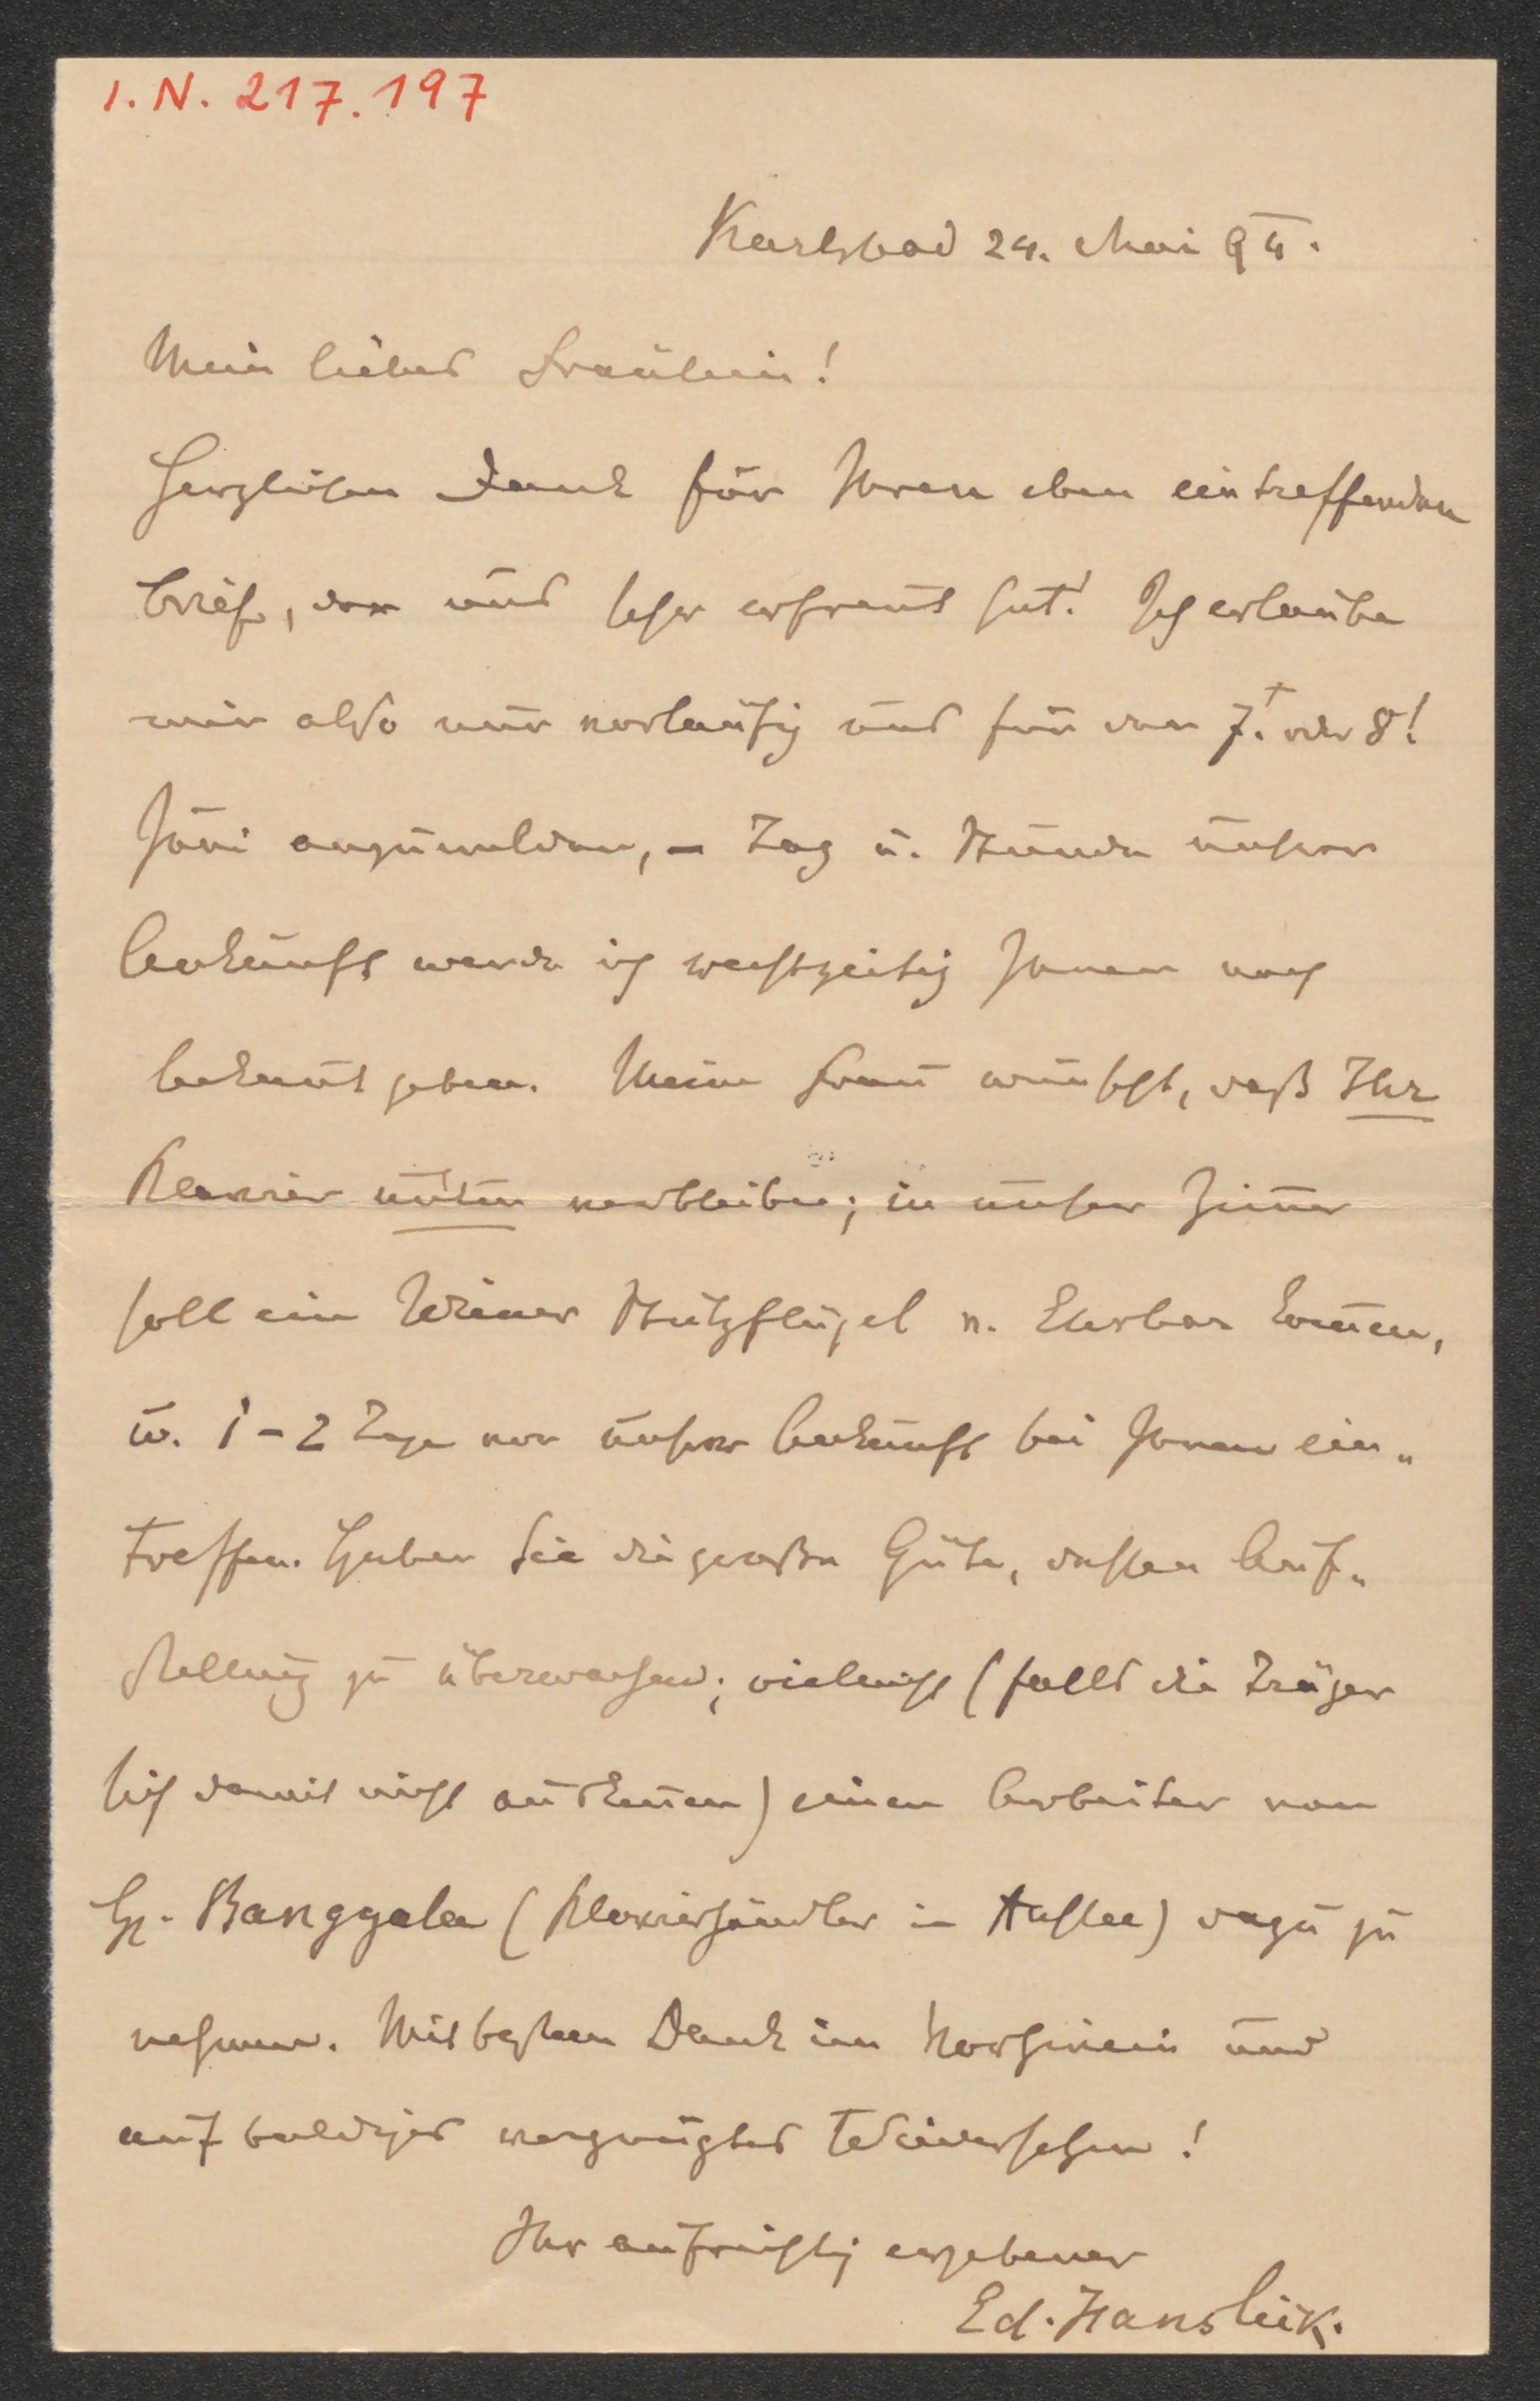 I. N. 217.197
Karlsbad 24. Mai 94.
Mein liebes Fräulein!
Herzlichen Dank für Ihren eben eintreffenden
Brief, der uns sehr erfreut hat! Ich erlaube
mir also nur vorläufig uns für den 7t. oder 8t
Juni anzumelden, – Tag u. Stunde unserer
Ankunft werde ich rechtzeitig Ihnen noch
bekannt geben. Meine Frau wünscht, daß Ihr
Klavier unten verbleibe; in unser Zim̄er
soll ein Wiener Stutzflügel v. Ehrbar kom̄en,
u. 1–2 Tage vor unserer Ankunft bei Ihnen ein„
treffen. Haben Sie die große Güte, dessen Auf„
stellung zu überwachen; vielleicht (falls die Träger
sich damit nicht auskennen) einen Arbeiter von
H. Banggala (Klavierhändler in Aussee) dazu zu
nehmen. Mit bestem Dank im Vorhinein und
auf baldiges vergnügtes Wiedersehen!
Ihr aufrichtig ergebener
Ed. Hanslick.